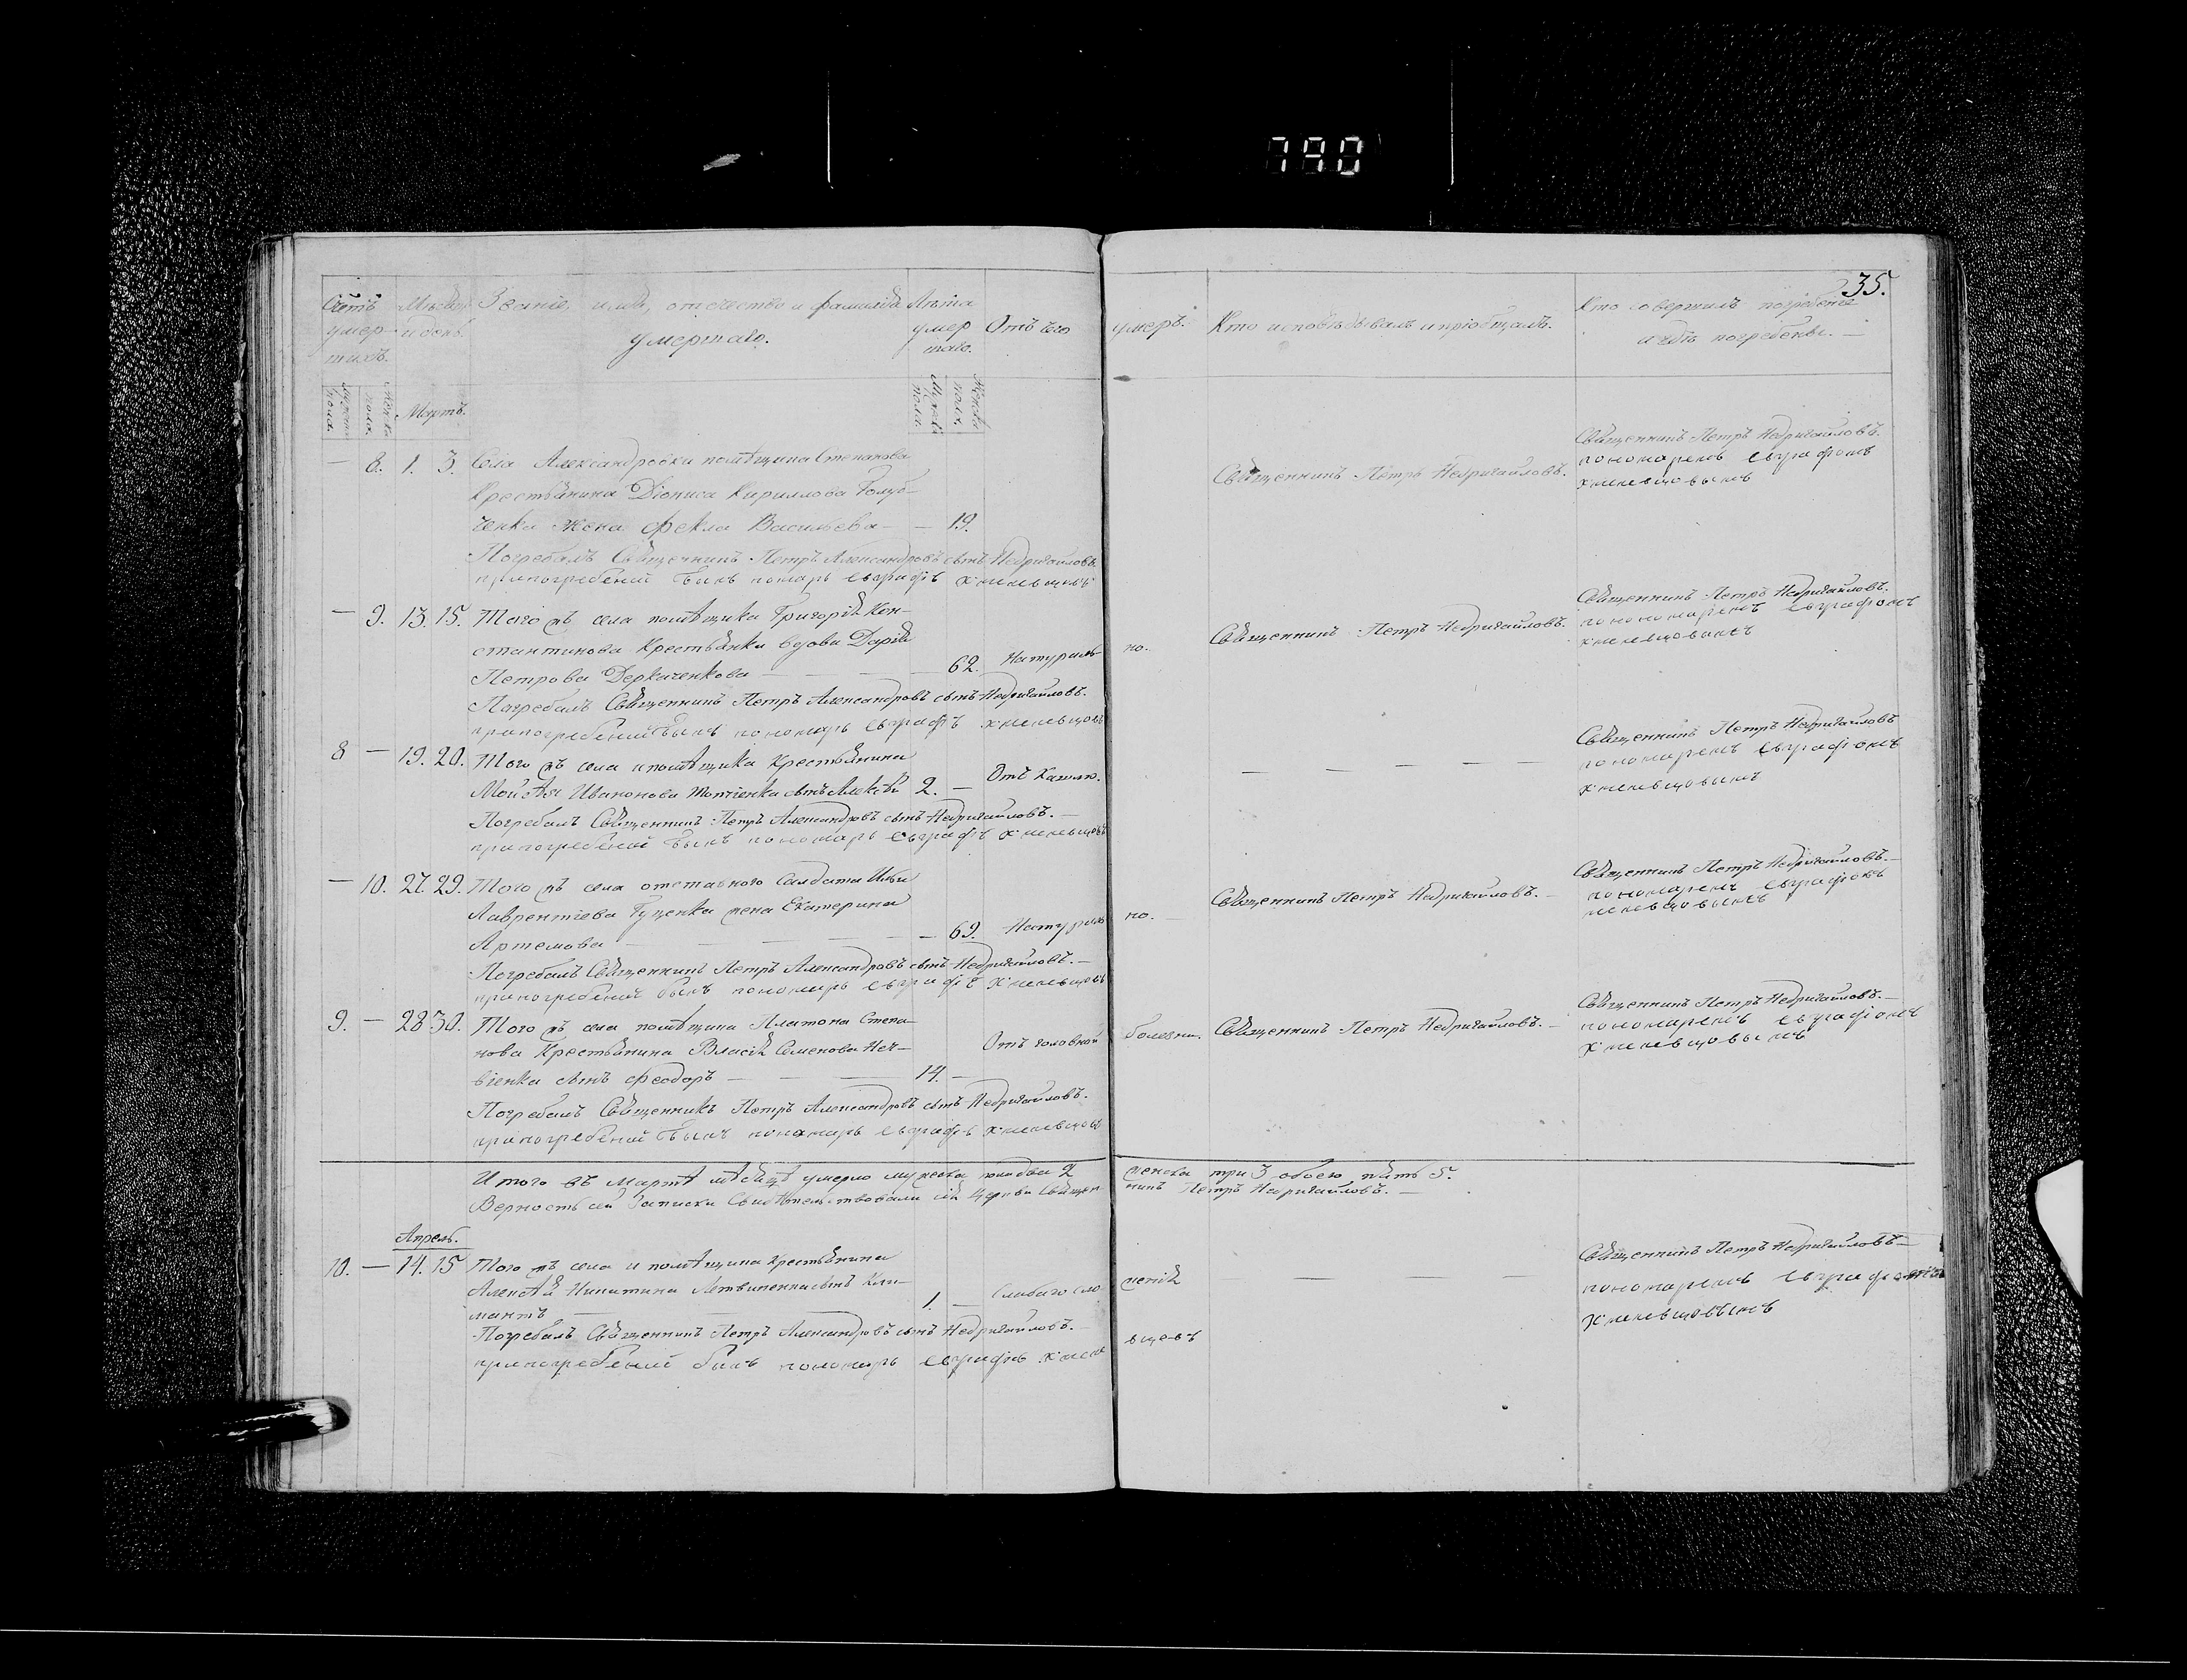 790
35.
Счетъ умершихъ.
Мѣсяцъ и день.
Званіе, имя, отечество и фамилія умершаго.
Лѣта умершаго.
Отъ чего умеръ.
Кто исповѣдывалъ и пріобщалъ.
Кто совершилъ погребеніе
и гдѣ погребены.
Мужска пола.
Женска пола.
Мартъ.
Мужска пола.
Женска пола.
— 8. 1. 3. Села Алексіандровки помѣщика Степанова
крестьянина Діониса Кириллова Голуб-
ченка жена Фекла Васильева — — 19.
Священникъ Петръ Недригайловъ.
Священникъ Петръ Недригайловъ.
пономаремъ Евграфомъ
Хмелевцовымъ
Погребалъ Священникъ Петръ Александровъ сынъ Недригайловъ.
припогребеніи былъ помарь Евграфъ Хмелевцовъ
— 9. 13. 15. Того жъ села помѣщика Григорія Кон-
стантинова крестьянка вдова Дарія
Петрова Деркаченкова — — — 62. Натураль- но.
Священникъ Петръ Недригайловъ.
Священникъ Петръ Недригайловъ.
пономаремъ Евграфомъ
Хмелевцовымъ
Погребалъ Священникъ Петръ Александровъ сынъ Недригайловъ.
припогребеніи былъ пономарь Евграфъ Хмелевцовъ
8 — 19. 20. Того жъ села и помѣщика крестьянина
Мойсѣя сынъ Алексѣй 2. — Отъ кашлю.
— — — — —
Священникъ Петръ Недригайловъ
пономаремъ Евграфомъ
Хмелевцовымъ
Погребалъ Священникъ Петръ Александровъ сынъ Недригайловъ. —
припогребеніи былъ пономарь Евграфъ Хмелевцовъ
— 10. 27. 29. Того жъ села отставного Салдата Ильи
Лаврентіева Гуценка жена Екатерина
Артемова — — — — — 69. Натураль но. —
Священникъ Петръ Недригайловъ. —
Священникъ Петръ Недригайловъ. —
пономаремъ Евграфомъ
мелевцовымъ
Погребалъ Священникъ Петръ Александровъ сынъ Недригайловъ. —
припогребеніи былъ пономарь Евграфъ Хмелевцовъ
9. — 28 30. Того жъ села помѣщика Платона Степа-
нова крестьянина Власія Семенова Неч-
віенка сынъ Феодоръ — — — 14. — Отъ головной болезни.
Священникъ Петръ Недригайловъ. —
Священникъ Петръ Недригайловъ. —
пономаремъ Евграфомъ
Хмелевцовымъ
Погребалъ Священникъ Петръ Александровъ сынъ Недригайловъ.
припогребеніи былъ пономарь Евграфъ Хмелевцовъ
Итого въ Мартѣ мѣсяцѣ умерло мужска два 2 женска три 3 обоего пять 5.
Верность сей Записки Свидѣтельствовали сей Церкви Священ- никъ Петръ Недригайловъ. —
Апрель.
10. — 14. 15 Того жъ села и помѣщика крестьянина
Алексѣя Никитина Летвиненка сынъ Кли-
мантъ — — — 1. — Слабаго сло женія
— — — —
Священникъ Петръ Недригайловъ —
пономаремъ Евграфомъ
Хмелевцовымъ
Погребалъ Священникъ Петръ Александровъ сынъ Недригайловъ. —
припогребеніи былъ пономарь Евграфъ Хмеле вцовъ